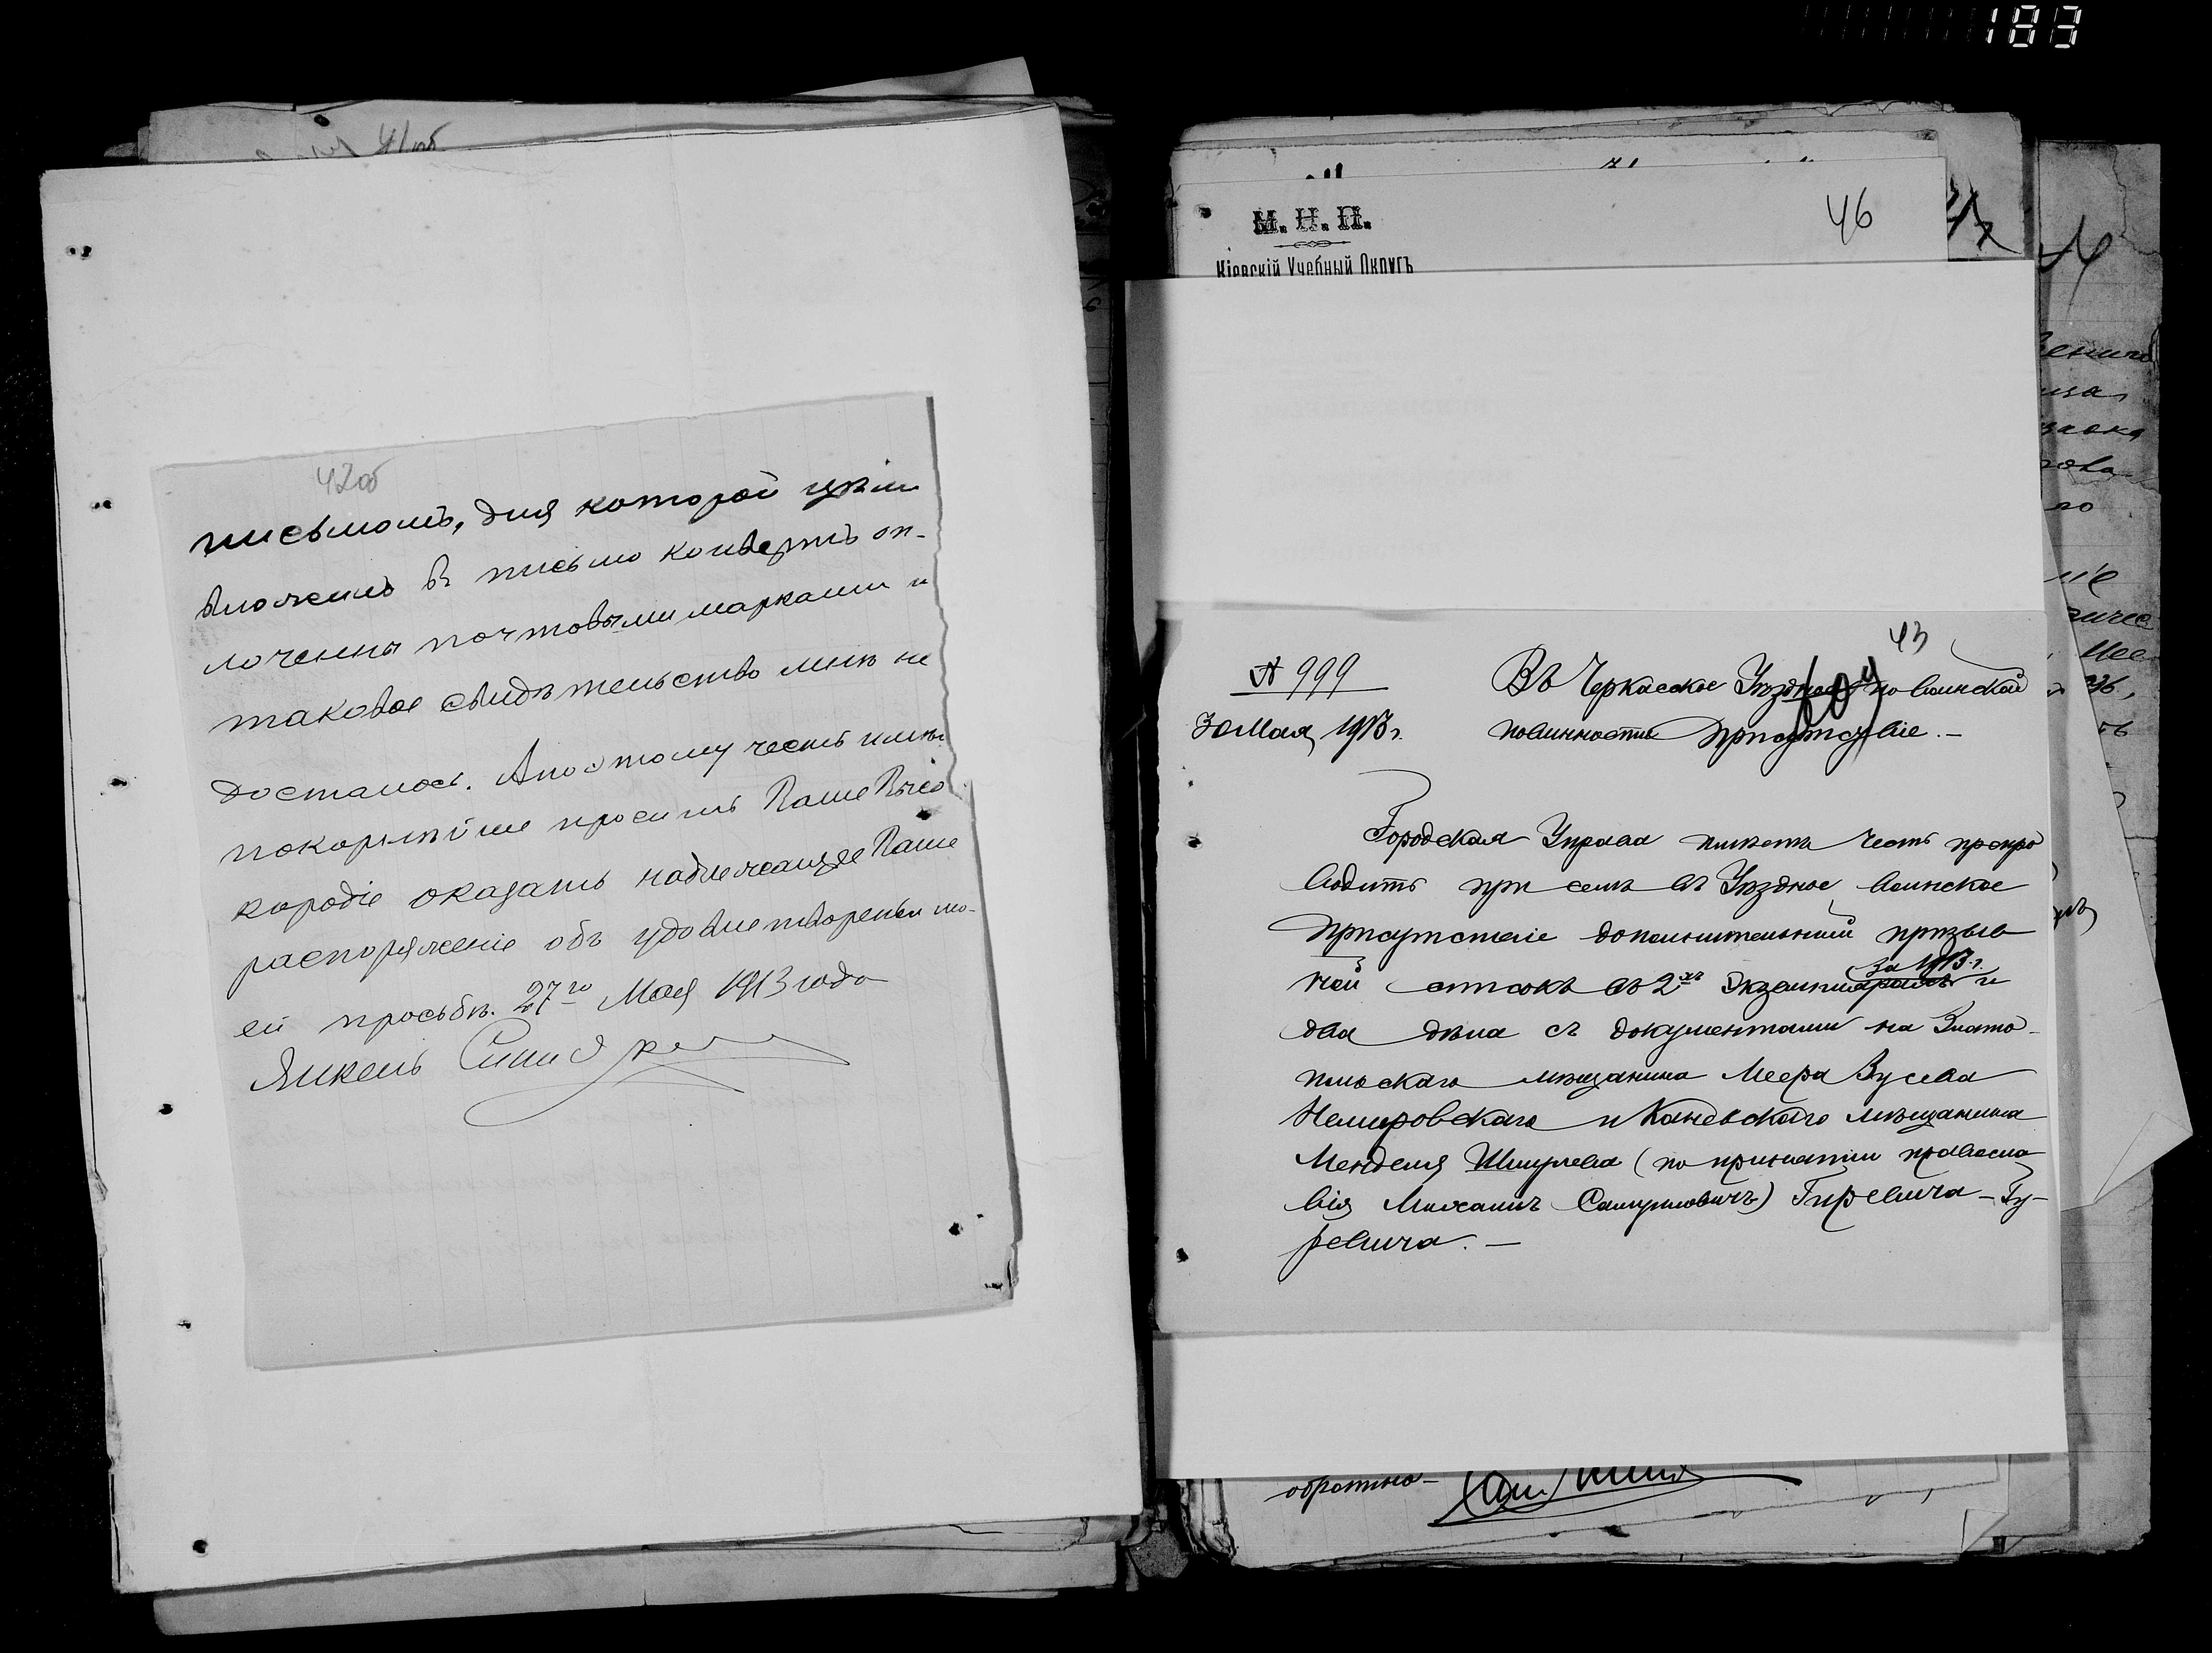 183
41об
42об
письмомъ, для которой цѣли
вложилъ въ письмо конвертъ оп-
лоченны почтовыми марками и
таковое свидѣтельство мнѣ не
досталось. А поэтому честь имѣю
покорнѣйше просить Ваше Высо
кородіе оказать надлежащее Ваше
распоряженіе объ удовлетвореніи мо-
ей просьбѣ. 27го Мая 1913 года
Янкель
М. Н. П.
46
47
Кіевскій Учебный Округъ
43
№ 999
Въ Черкасское Уѣздное по воинской
30 Мая 1913 г.
повинности Присутствіе. —
Городская Управа имѣетъ честь препро
водить при семъ въ Уѣздное воинское
Присутствіе дополнительный призыв
ной списокъ въ 2хъ экземплярахъ и
за 1913 г.
два дѣла съ документами на Злато-
польскаго мѣщанина Меера Зусева
Немировскаго и Каневскаго мѣщанина
Менделя Шмулева (по принятіи правосла
вія Михаилъ Самуиловичъ) Гиревича-Гу-
ревича. —
обратно —